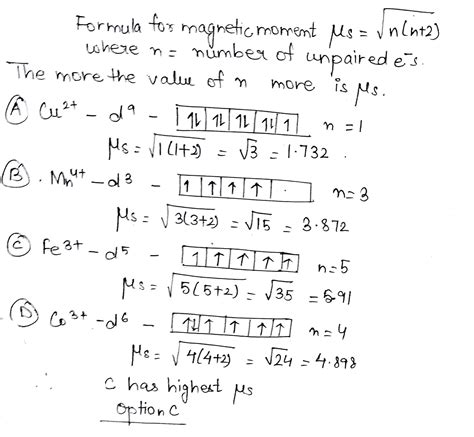 Formula for magnetic moment μs = √n(n+2)
where n = number of unpaired e⁻s.
The more the value of n more is μs.
(A) Cu²⁺ - d⁹ - [↑↓|↑↓|↑↓|↑↓|↑] n = 1
μs = √1(1+2) = √3 = 1.732 .
(B) . Mn⁴⁺ - d³ - [↑|↑|↑|↑| ] n = 3
μs = √3(3+2) = √15 = 3.872
(C) Fe³⁺ - d⁵ - [↑|↑|↑|↑|↑] n = 5
μs = √5(5+2) = √35 = 5.91
(D) Co³⁺ - d⁶ - [↑↓|↑|↑|↑|↑] n = 4
μs = √4(4+2) = √24 = 4.898
∴ C has highest μs
option C